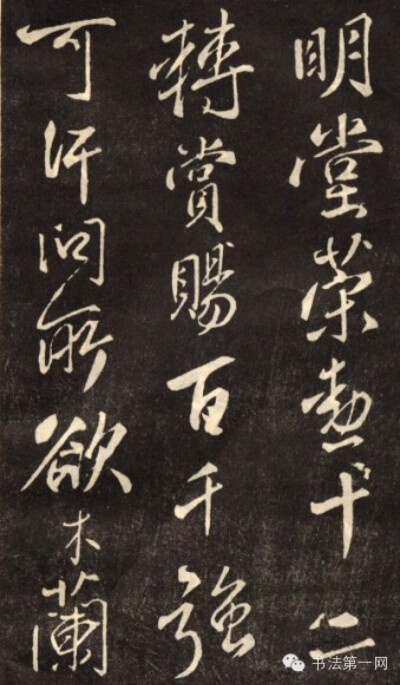 明堂策勳十二
轉賞賜百千強
可汗問所欲木蘭
书法第一网